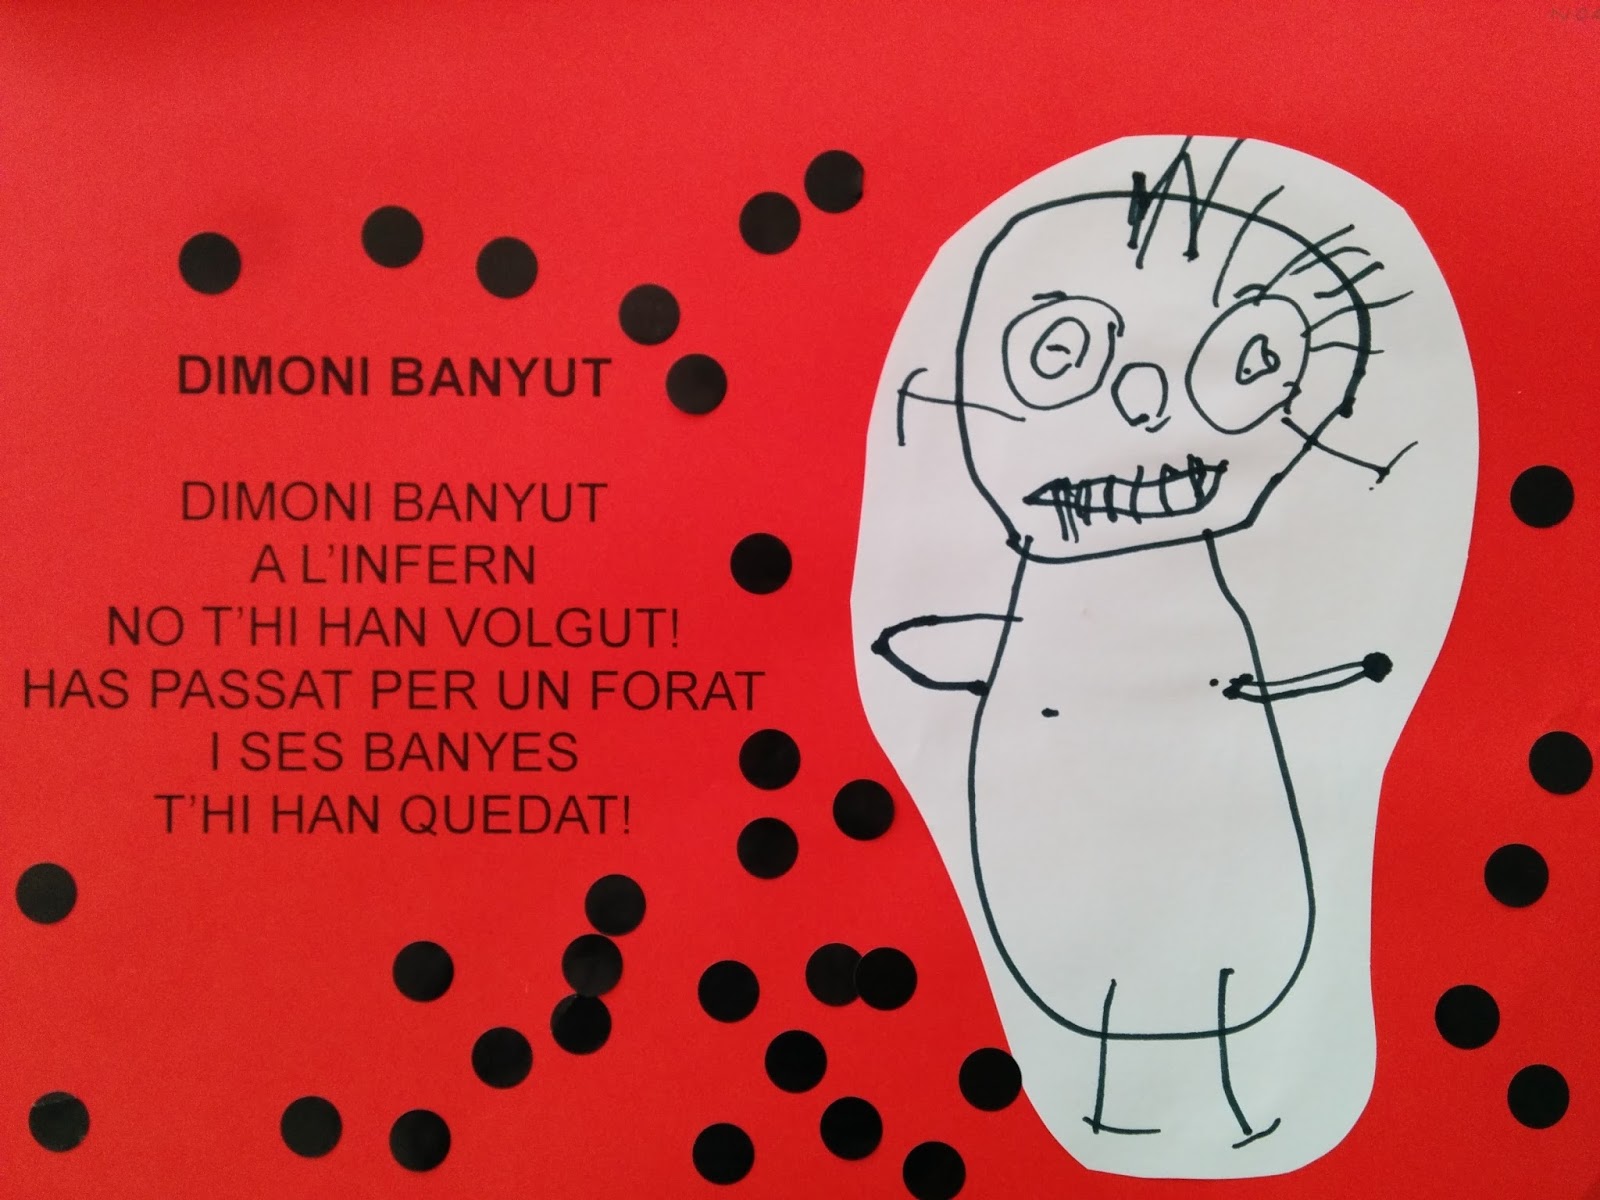 DIMONI BANYUT
DIMONI BANYUT
A L'INFERN
NO T'HI HAN VOLGUT!
HAS PASSAT PER UN FORAT
I SES BANYES
T'HI HAN QUEDAT!